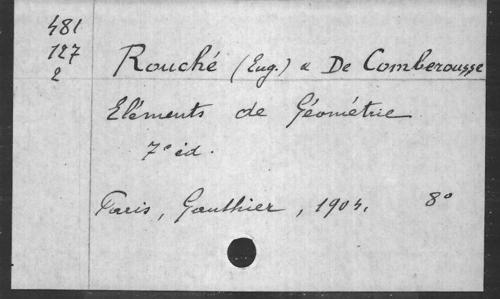 481
127
2
Rouché (Eug.) & De Comberousse
Eléments de Géométrie
7e éd.
Paris, Gauthier, 1904. 8°